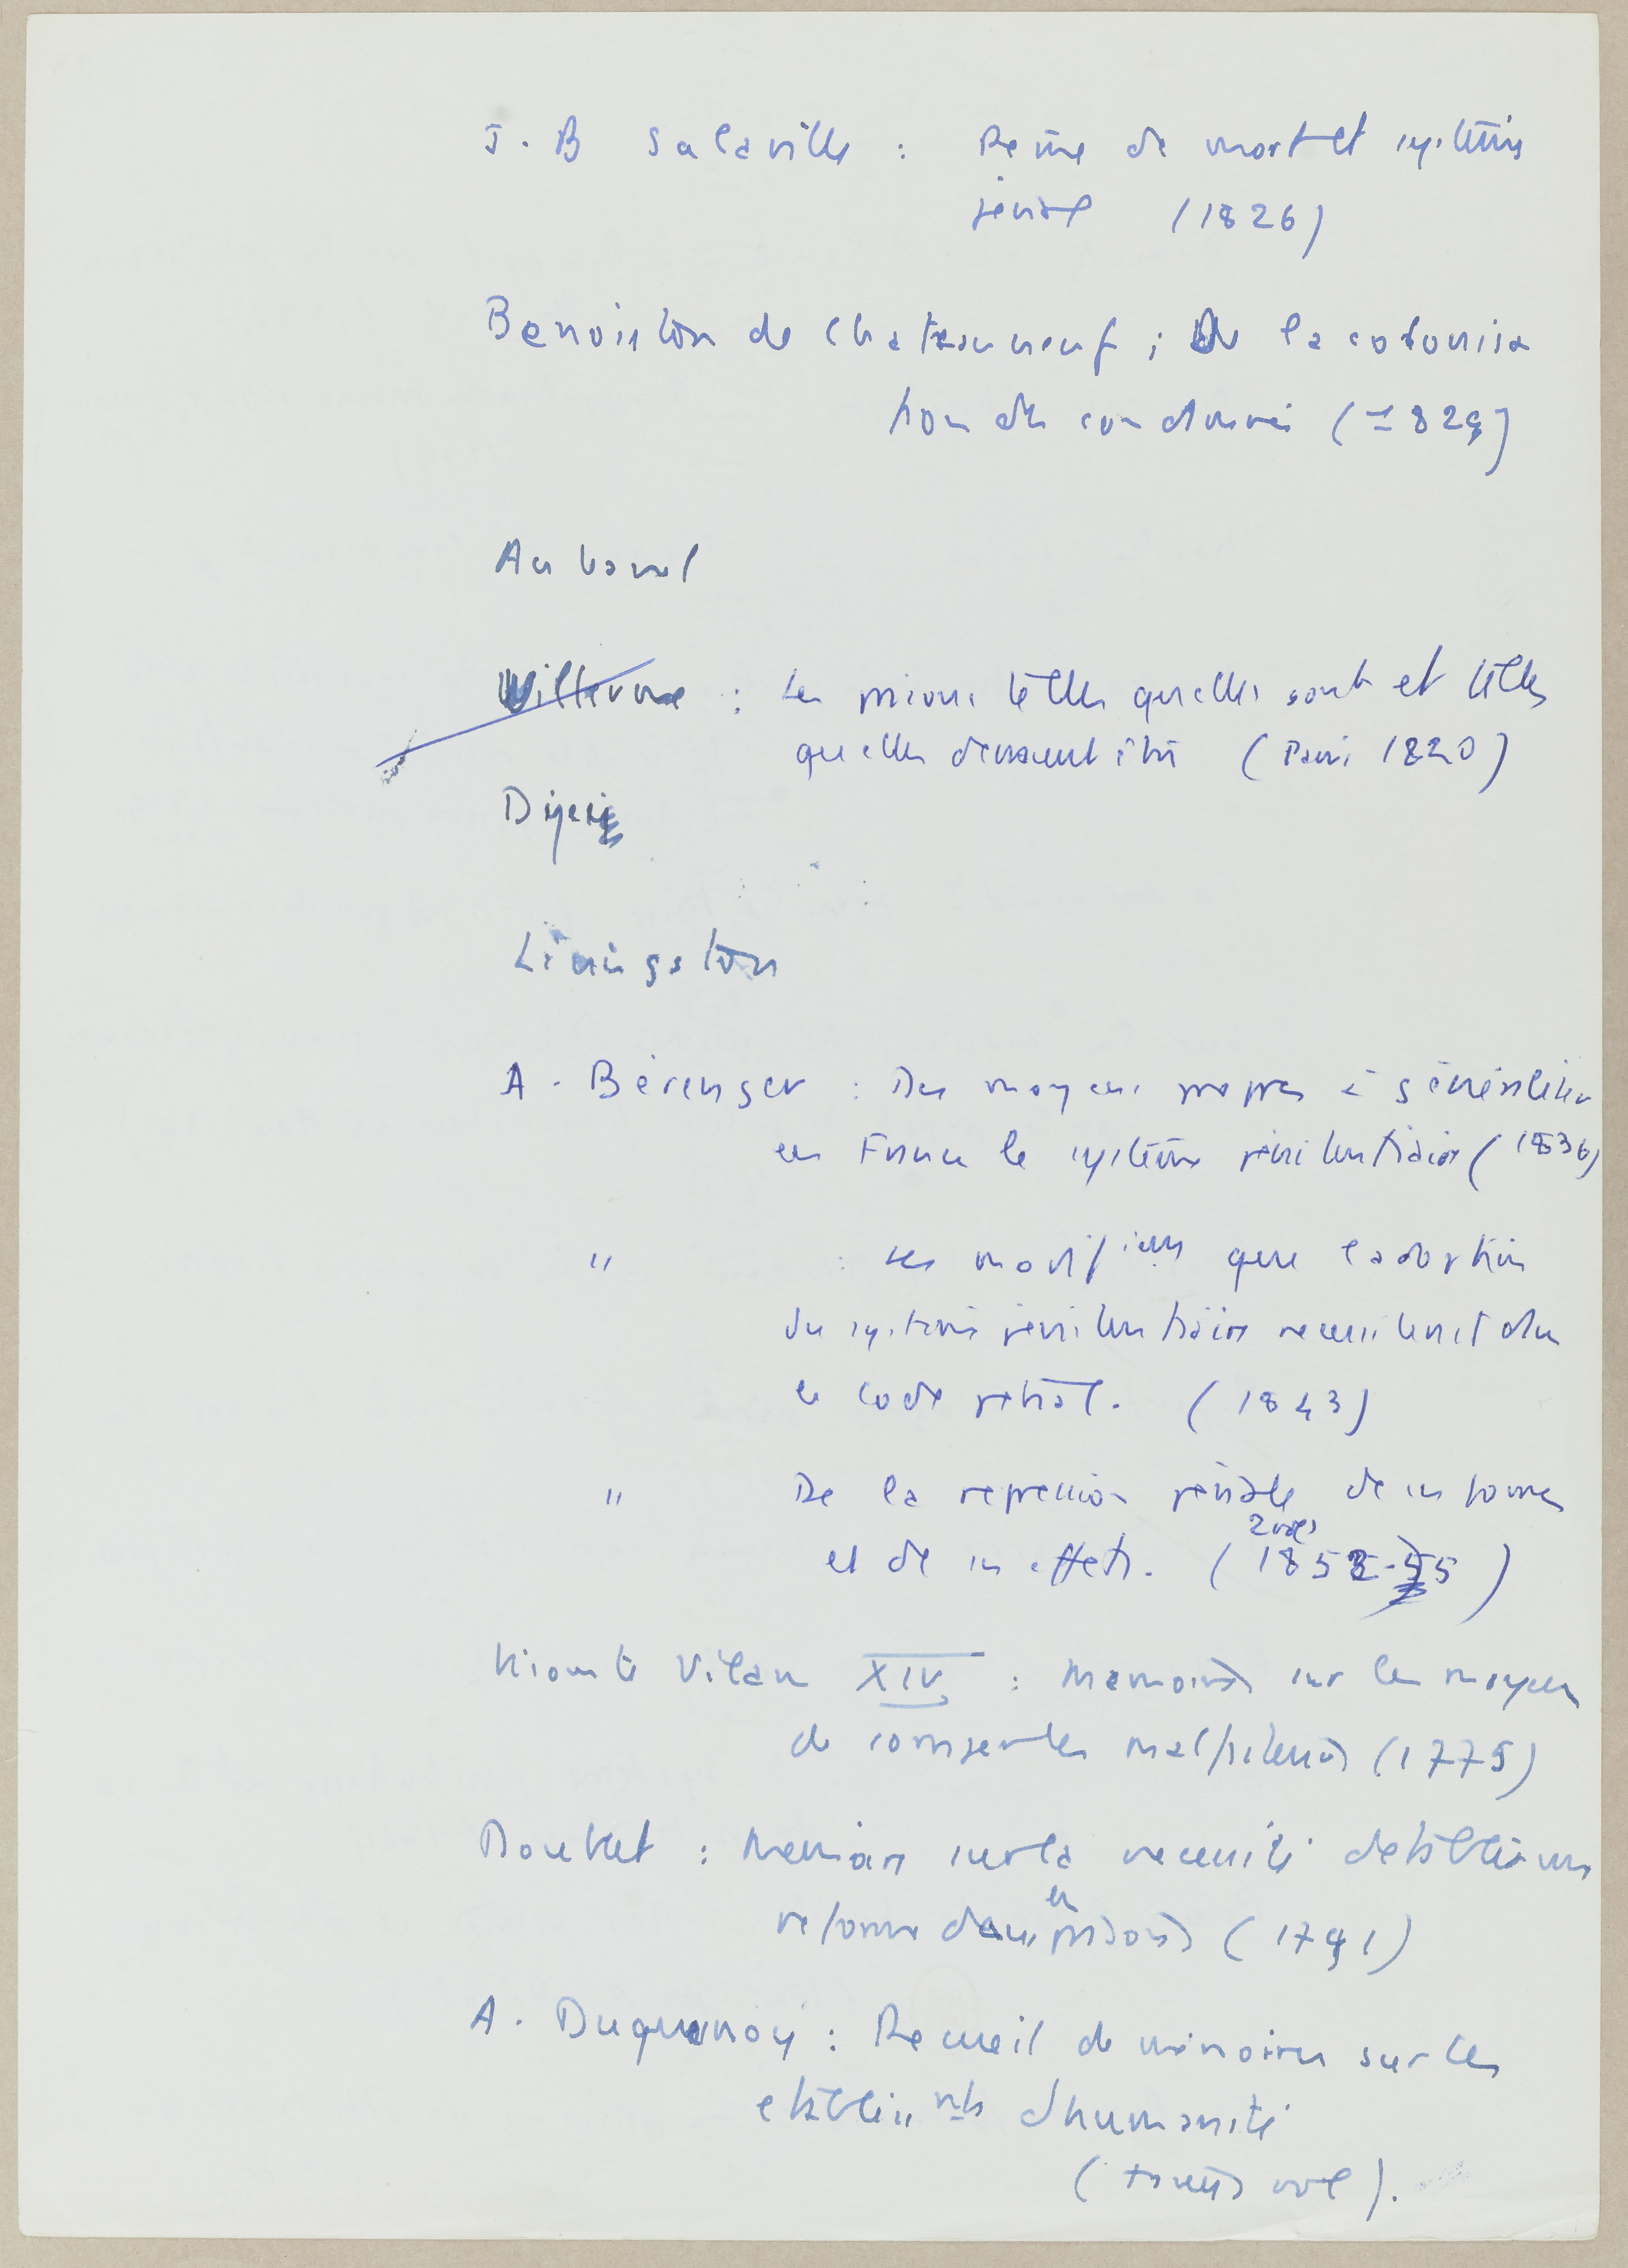 J. B Salaville : Peine de mort et système
pénal (1826)
Benoiston de Chateauneuf ; De la colonisa
tion des condamnés (1829)
Aubanel
Villermé : Les prisons telles quelles sont et telles
quelles devraient être (Paris 1820)
Livingston
A. Bérenger : Des moyens propres à généraliser
en France le système pénitentiaire (1836)
" : Les modif ions que l adoption
du système pénitentiaire necessiterait dans
le Code pénal. (1843)
" De la repression pénale de ses formes
2 vols
et de ses effets. (1852-55)
Vicomte Vilain XIV : Memoires sur les moyens
de corriger les malfaiteurs (1775)
Doublet : Memoire sur la necessité detablir une
reforme dans les prisons (1791)
A. Duquesnoy : Recueil de mémoires sur les
etabliss mts dhumanité
( vol).